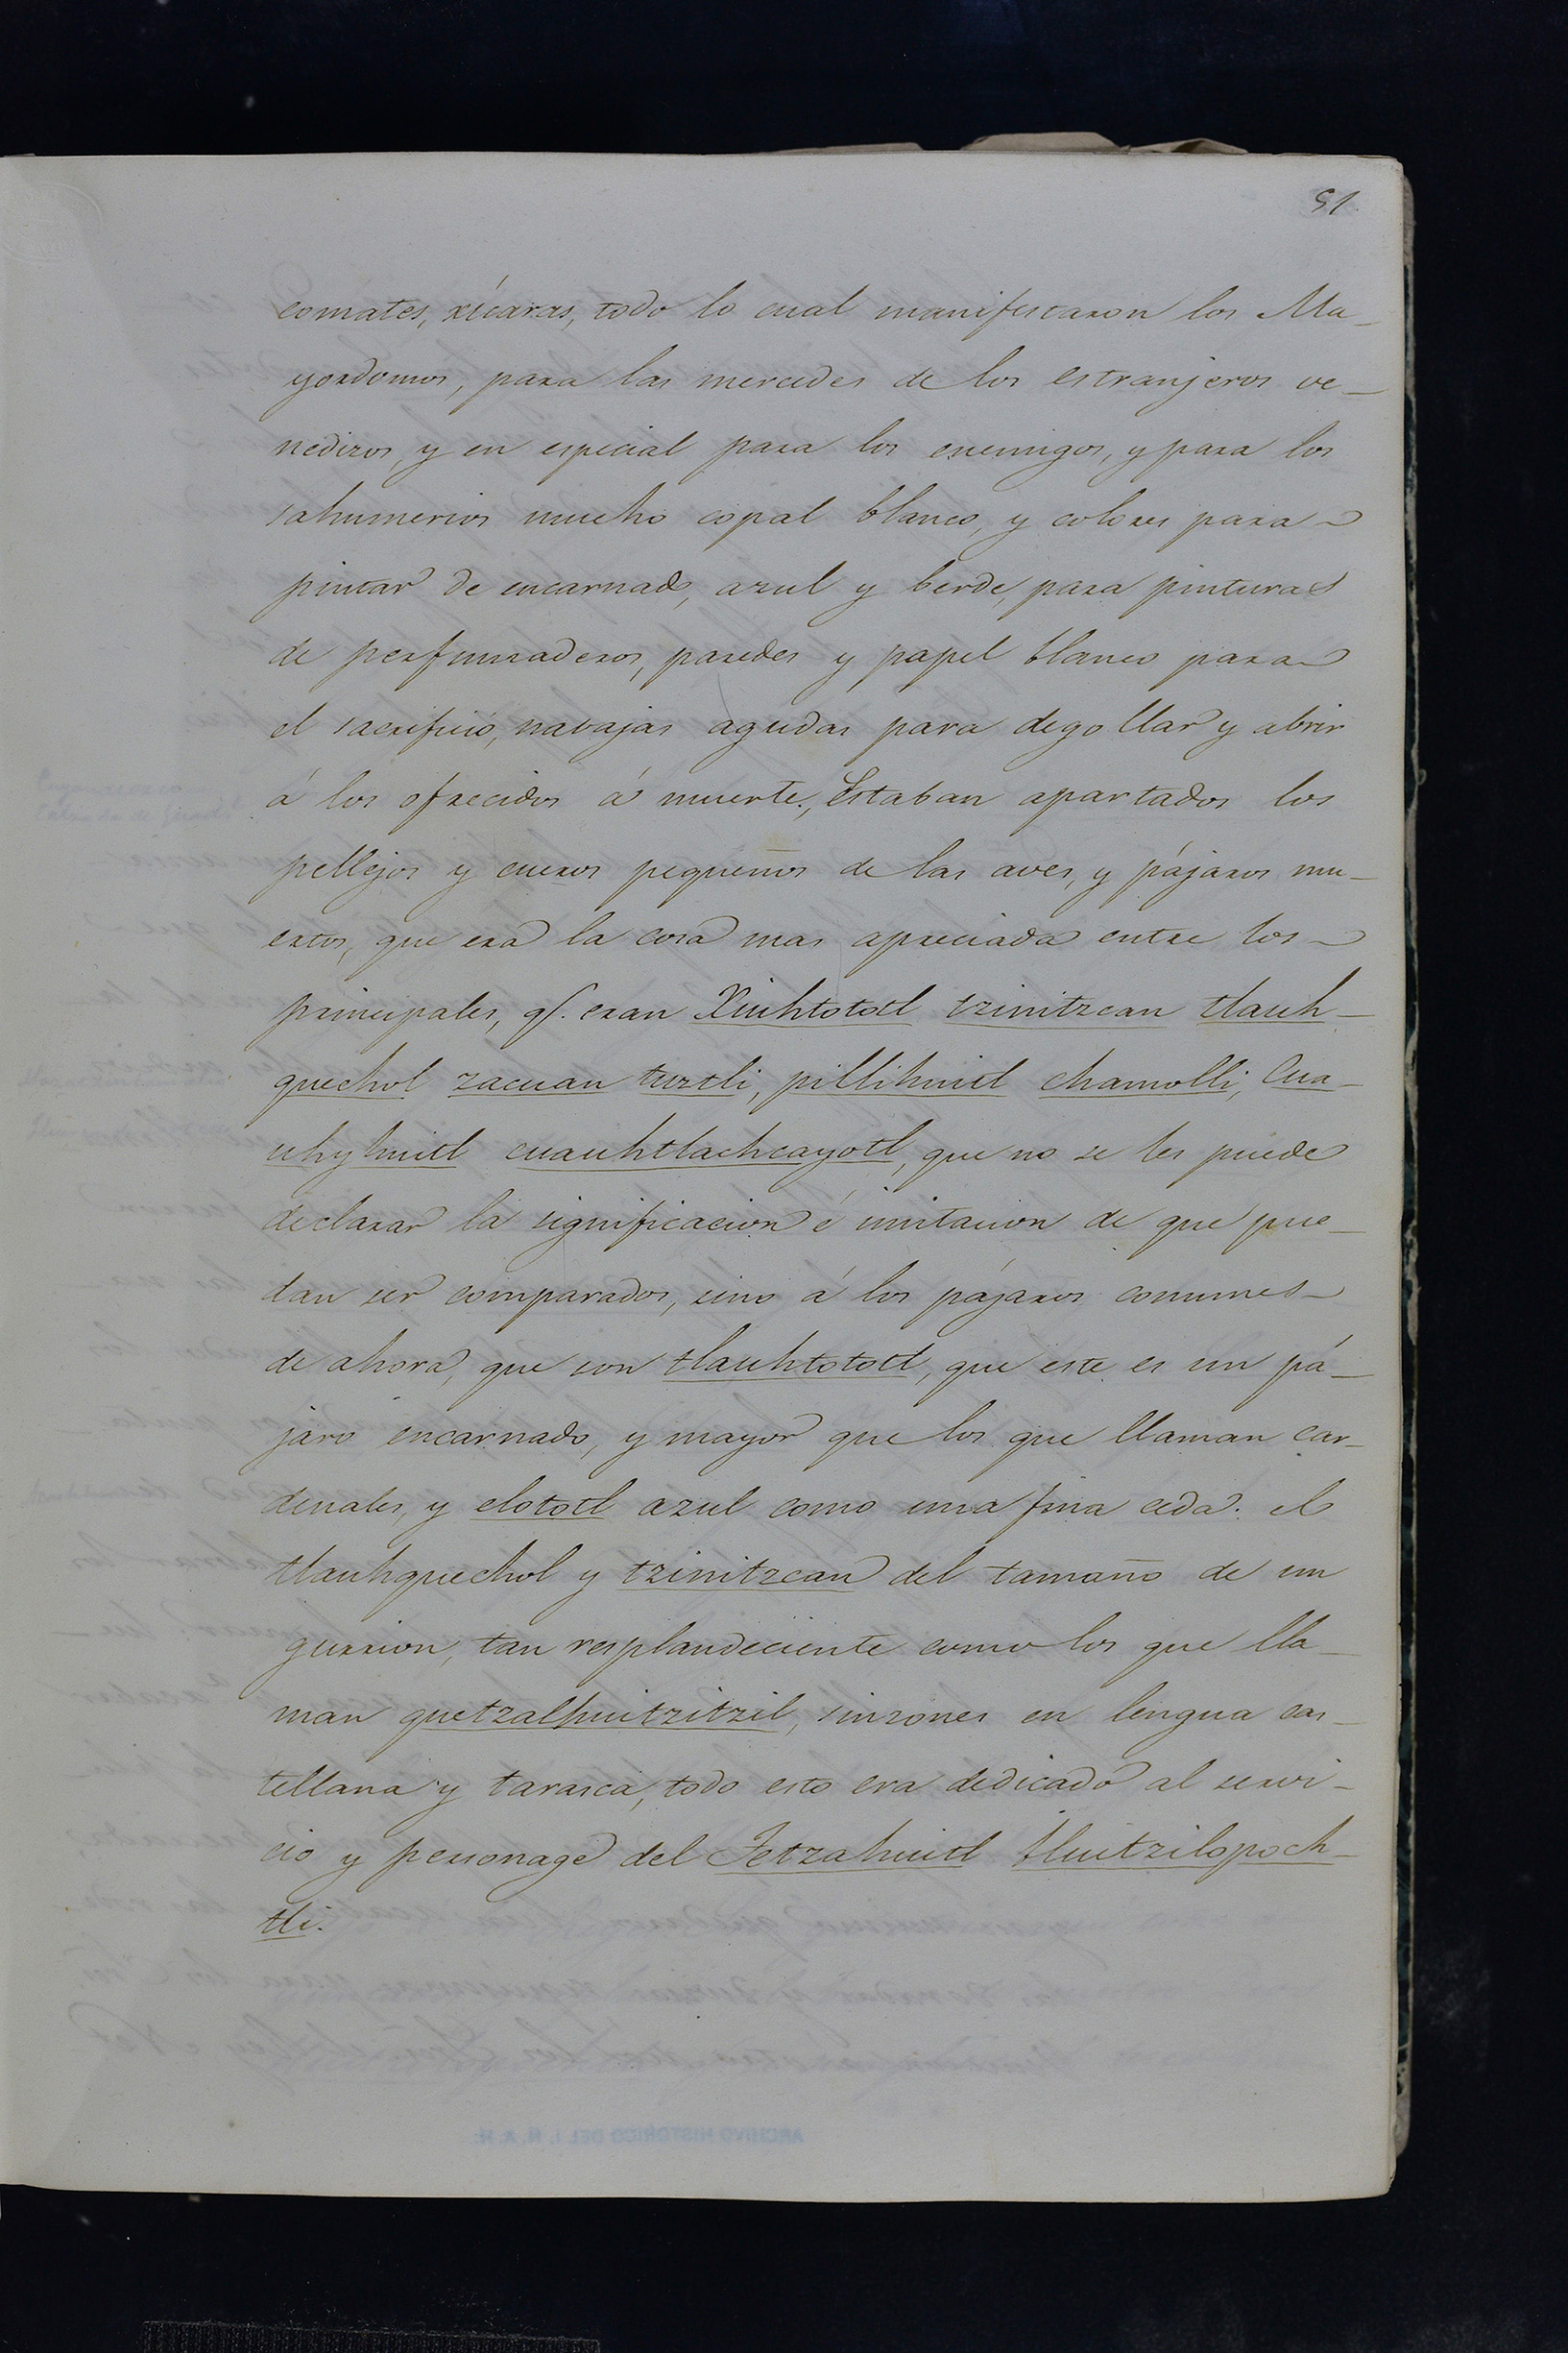 51.
comates, xícaras, todo lo cual manifestaron los Ma-
yordomos, para las mercedes de los estranjeros ve-
nedizos, y en especial para los enemigos, y para los
sahumerios mucho copal blanco, y colores para
pintar de encarnado, azul y berde, para pinturas
de perfumaderos, paredes y papel blanco para
el sacrificio, navajas agudas para degollar y abrir
á los ofrecidos á muerte., Estaban apartados los
pellejos y cueros pequeños de las aves, y pájaros mu-
ertos, que era la cosa mas apreciada entre los
principales, q.e eran Xiuhtototl tzinitzcan tlauh-
quechol zacuan tuztli, pillihuitl chamolli, Cua-
uhyhuitl cuauhtlachcayotl, que no se les puede
declarar la significacion é imitacion de que pue-
dan ser comparados, sino á los pájaros comunes
de ahora, que son tlauhtototl, que este es un pá-
jaro encarnado, y mayor que los que llaman car-
denales, y elototl azul como una fina ceda. el
tlauhquechol y tzinitzcan del tamaño de un
gurrion, tan resplandeciente como los que lla-
man quetzalhuitzitzil, sinzones en lengua cas-
tellana y tarasca, todo esto era dedicado al servi-
cio y personage del Tetzahuitl Huitzilopoch-
tli.
ARCHIVO HISTORICO DEL I. N. A. H.